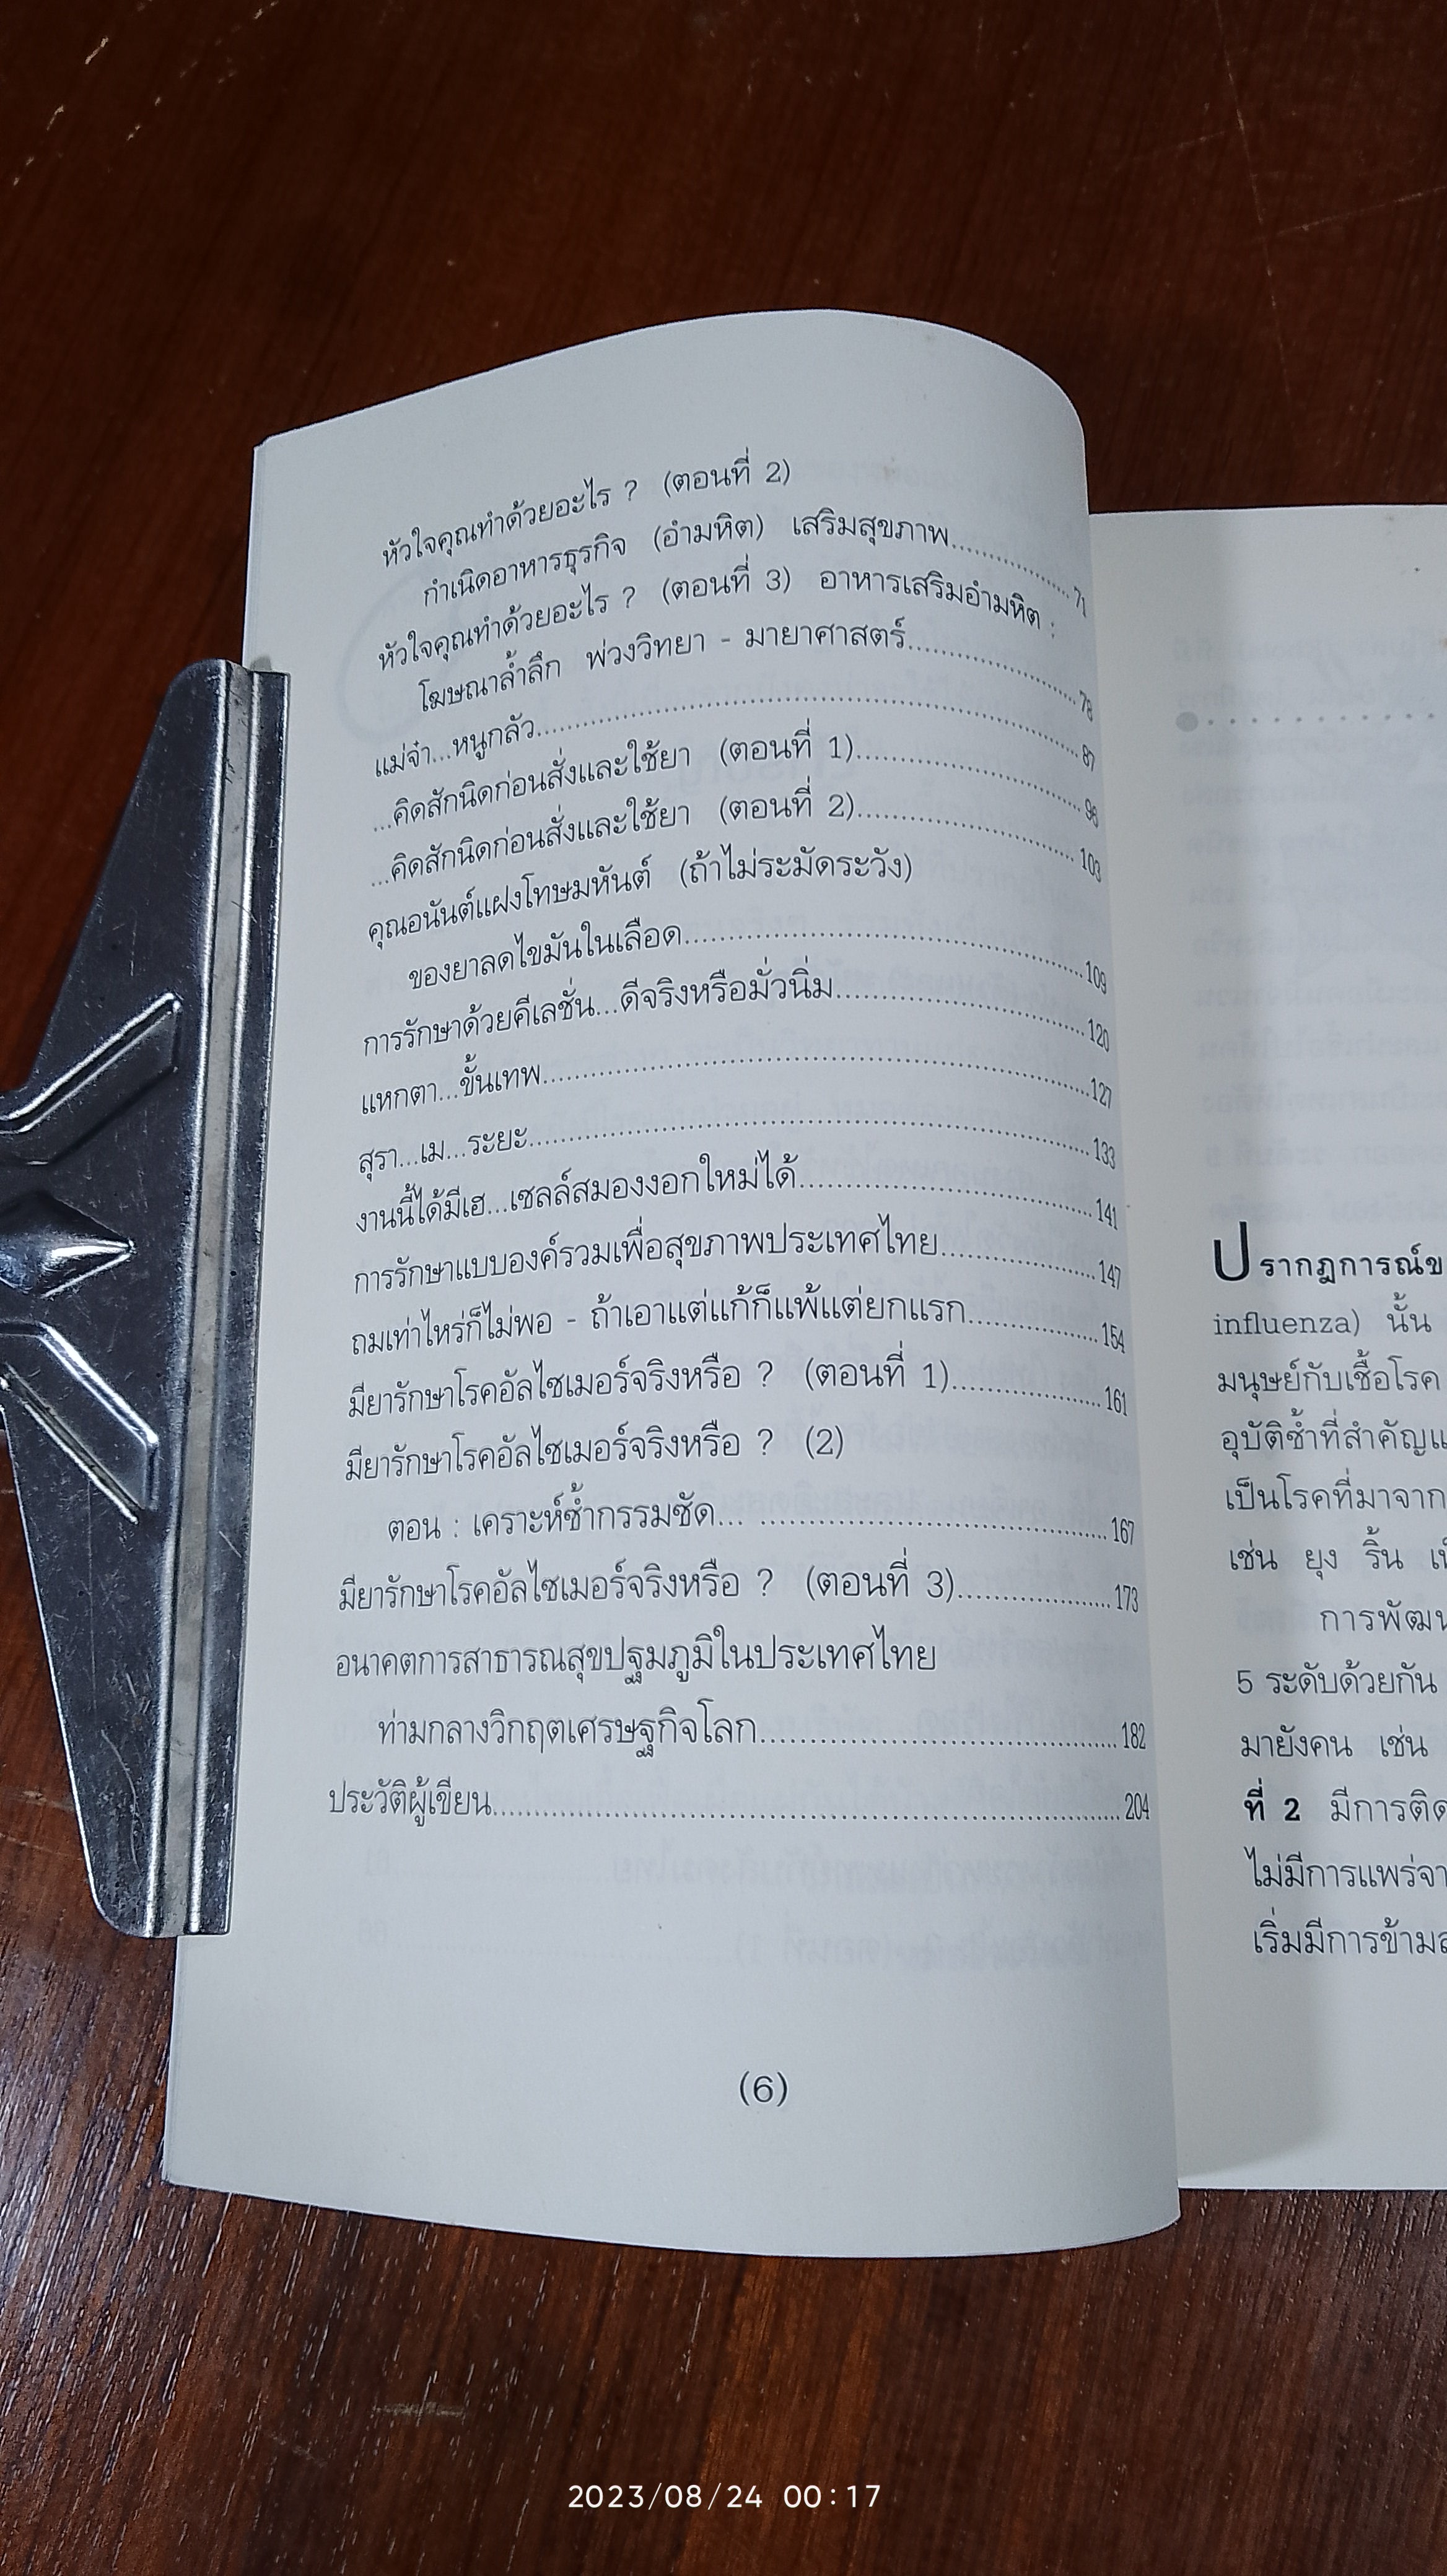 หัวใจคุณทำด้วยอะไร ? (ตอนที่ 2)
กำเนิดอาหารธุรกิจ (อำมหิต) เสริมสุขภาพ..........71
หัวใจคุณทำด้วยอะไร ? (ตอนที่ 3) อาหารเสริมอำมหิต :
โฆษณาล้ำลึก พ่วงวิทยา - มายาศาสตร์..........78
แม่จ๋า...หนูกลัว..........87
...คิดสักนิดก่อนสั่งและใช้ยา (ตอนที่ 1)..........96
...คิดสักนิดก่อนสั่งและใช้ยา (ตอนที่ 2)..........103
คุณอนันต์แฝงโทษมหันต์ (ถ้าไม่ระมัดระวัง)
ของยาลดไขมันในเลือด..........109
การรักษาด้วยคีเลชั่น...ดีจริงหรือมั่วนิ่ม..........120
แหกตา...ขั้นเทพ..........127
สุรา...เม...ระยะ..........133
งานนี้ได้มีเฮ...เซลล์สมองงอกใหม่ได้..........141
การรักษาแบบองค์รวมเพื่อสุขภาพประเทศไทย..........147
ถมเท่าไหร่ก็ไม่พอ - ถ้าเอาแต่แก้ก็แพ้แต่ยกแรก..........154
มียารักษาโรคอัลไซเมอร์จริงหรือ ? (ตอนที่ 1)..........161
มียารักษาโรคอัลไซเมอร์จริงหรือ ? (2)
ตอน : เคราะห์ซ้ำกรรมซัด... ..........167
มียารักษาโรคอัลไซเมอร์จริงหรือ ? (ตอนที่ 3)..........173
อนาคตการสาธารณสุขปฐมภูมิในประเทศไทย
ท่ามกลางวิกฤตเศรษฐกิจโลก..........182
ประวัติผู้เขียน..........204
(6)
ปรากฏการณ์ข
influenza) นั้น
มนุษย์กับเชื้อโรค
อุบัติซ้ำที่สำคัญแ
เป็นโรคที่มาจาก
เช่น ยุง ริ้น เ
การพัฒ
5 ระดับด้วยกัน
มายังคน เช่น
ที่ 2 มีการติด
ไม่มีการแพร่จา
เริ่มมีการข้าม
2023/08/24 00:17